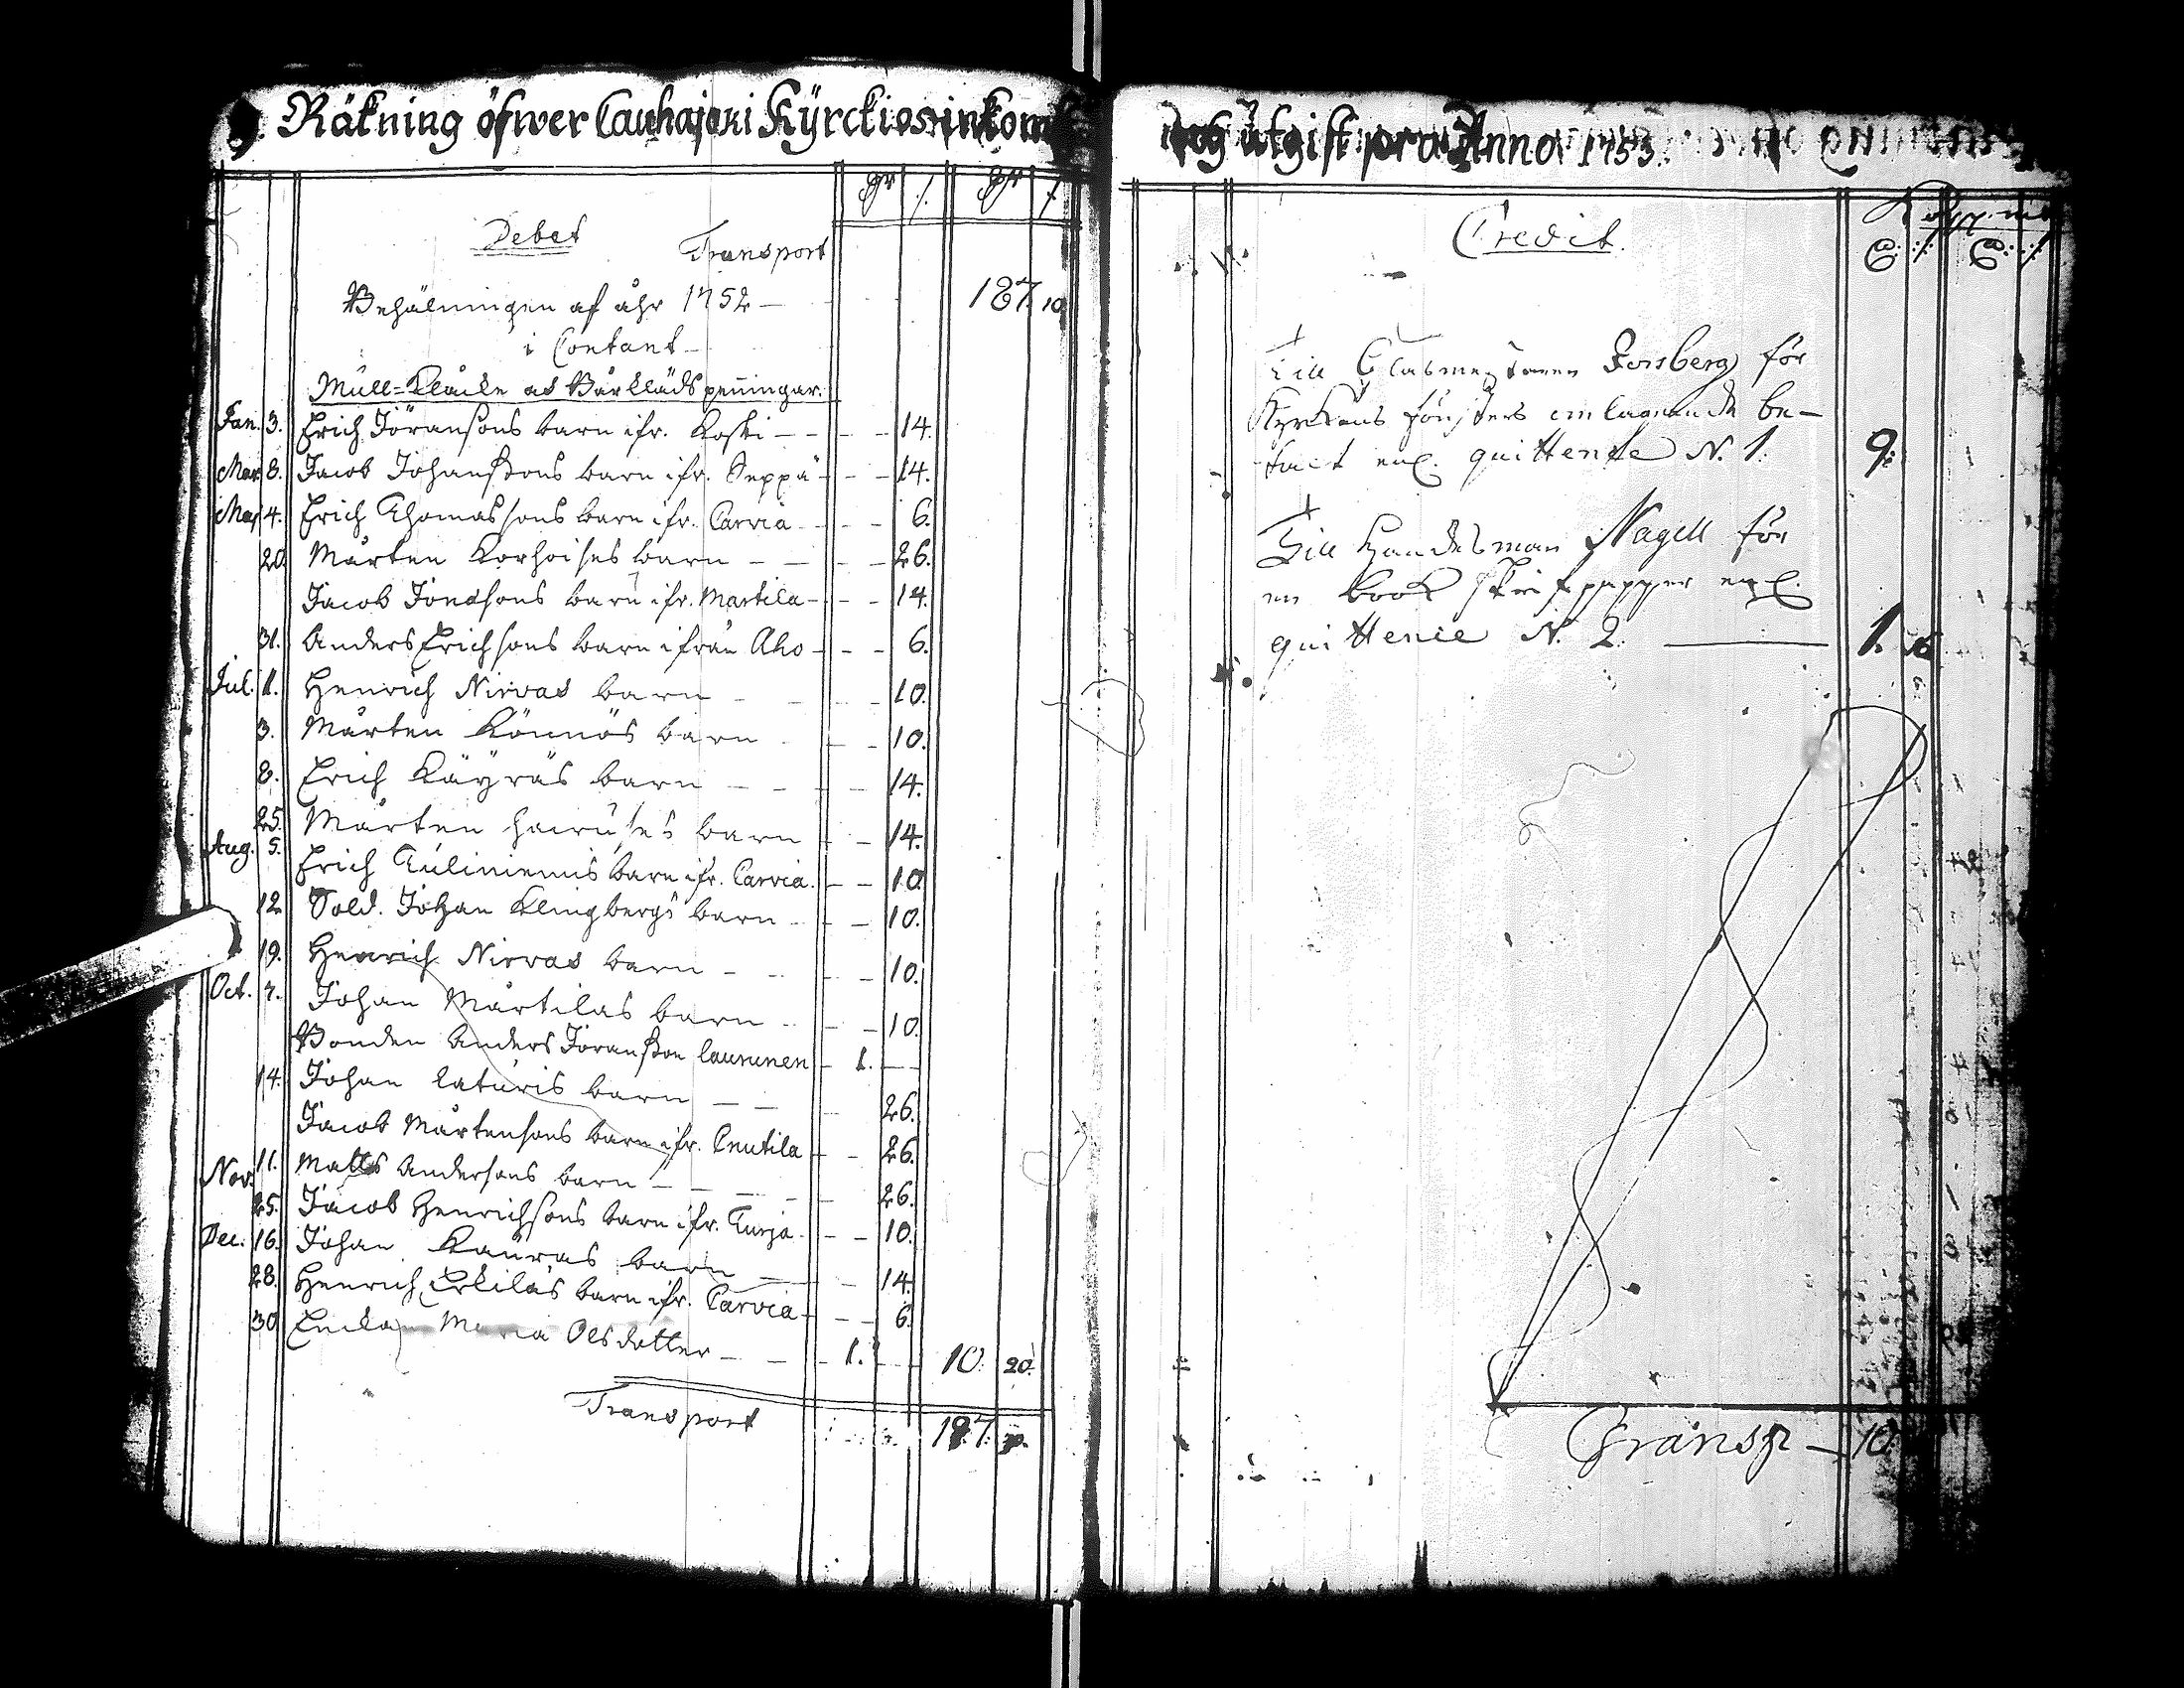 Räkning öfwer Cauhajoki Kÿrckios inkom
og ûtgift pro Anno 1753.
Debet
Transport
Behålningen af åhr 1752 — 187. 10
i Contant
Mull=Klåcke og Bårklåds penningar.
Jan. 3. Erich Jöransons barn ifr. Koski — 14.
Mar. 8. Jacob Johanssons barn ifr. Seppä — 14.
May 4. Erich Thomassons barn ifr. Carvia — 6.
20. Mårten Korhoises barn — 26.
Jacob Jonasons barn ifr. Martila — 14.
31. Anders Erichsons barn ifrån Aho — 6.
Jul. 1. Henrich Nirvas barn — 10.
3. Mårten Könnös barn — 10.
8. Erich Käyräs barn — 14.
25. Mårten barn — 14.
Aug. 5. Erich barn ifr. Carvia. — 10.
12. Sold. Johan Klingbergs barn — 10.
19. Henrich Nirvas barn — 10.
Oct. 7. Johan Mårtilas barn — 10.
Bonden Anders Jöransson — 1. —
14. Johan barn — 26.
Jacob Mårtensons barn ifr. Cnutila — 26.
Nov. 11. Matts Andersons barn — 26.
25. Jacob Henrichsons barn ifr. Turja — 10.
Dec. 16. Johan Kauras barn — 14.
28. Henrich Erkiläs barn ifr. Carvia — 6.
30. Enckan Maria Olsdotter — 1. — 10. 20.
Transport
Credit.
Till Glasmestaren Forsberg för
Kyrkans fönsters be-
talt enl. quittence N. 1. 9.
Till Handelsman Nagell för
en book skrifpapper enl.
quittence N. 2. — 1.
Transp — 10.